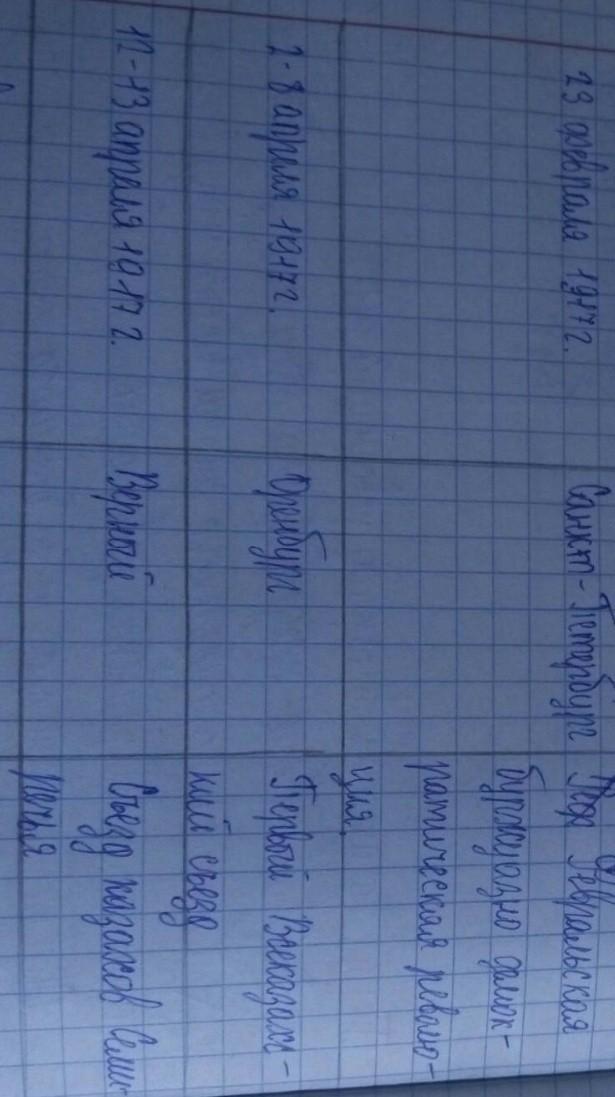 23 февраля 1917 г. Санкт-Петербург Февральская
буржуазно демок-
ратическая револю-
ция.
2-8 апреля 1917 г. Оренбург Первый Всеказахс-
кий съезд
12-13 апреля 1917 г. Верный Съезд казахов Семи
речья